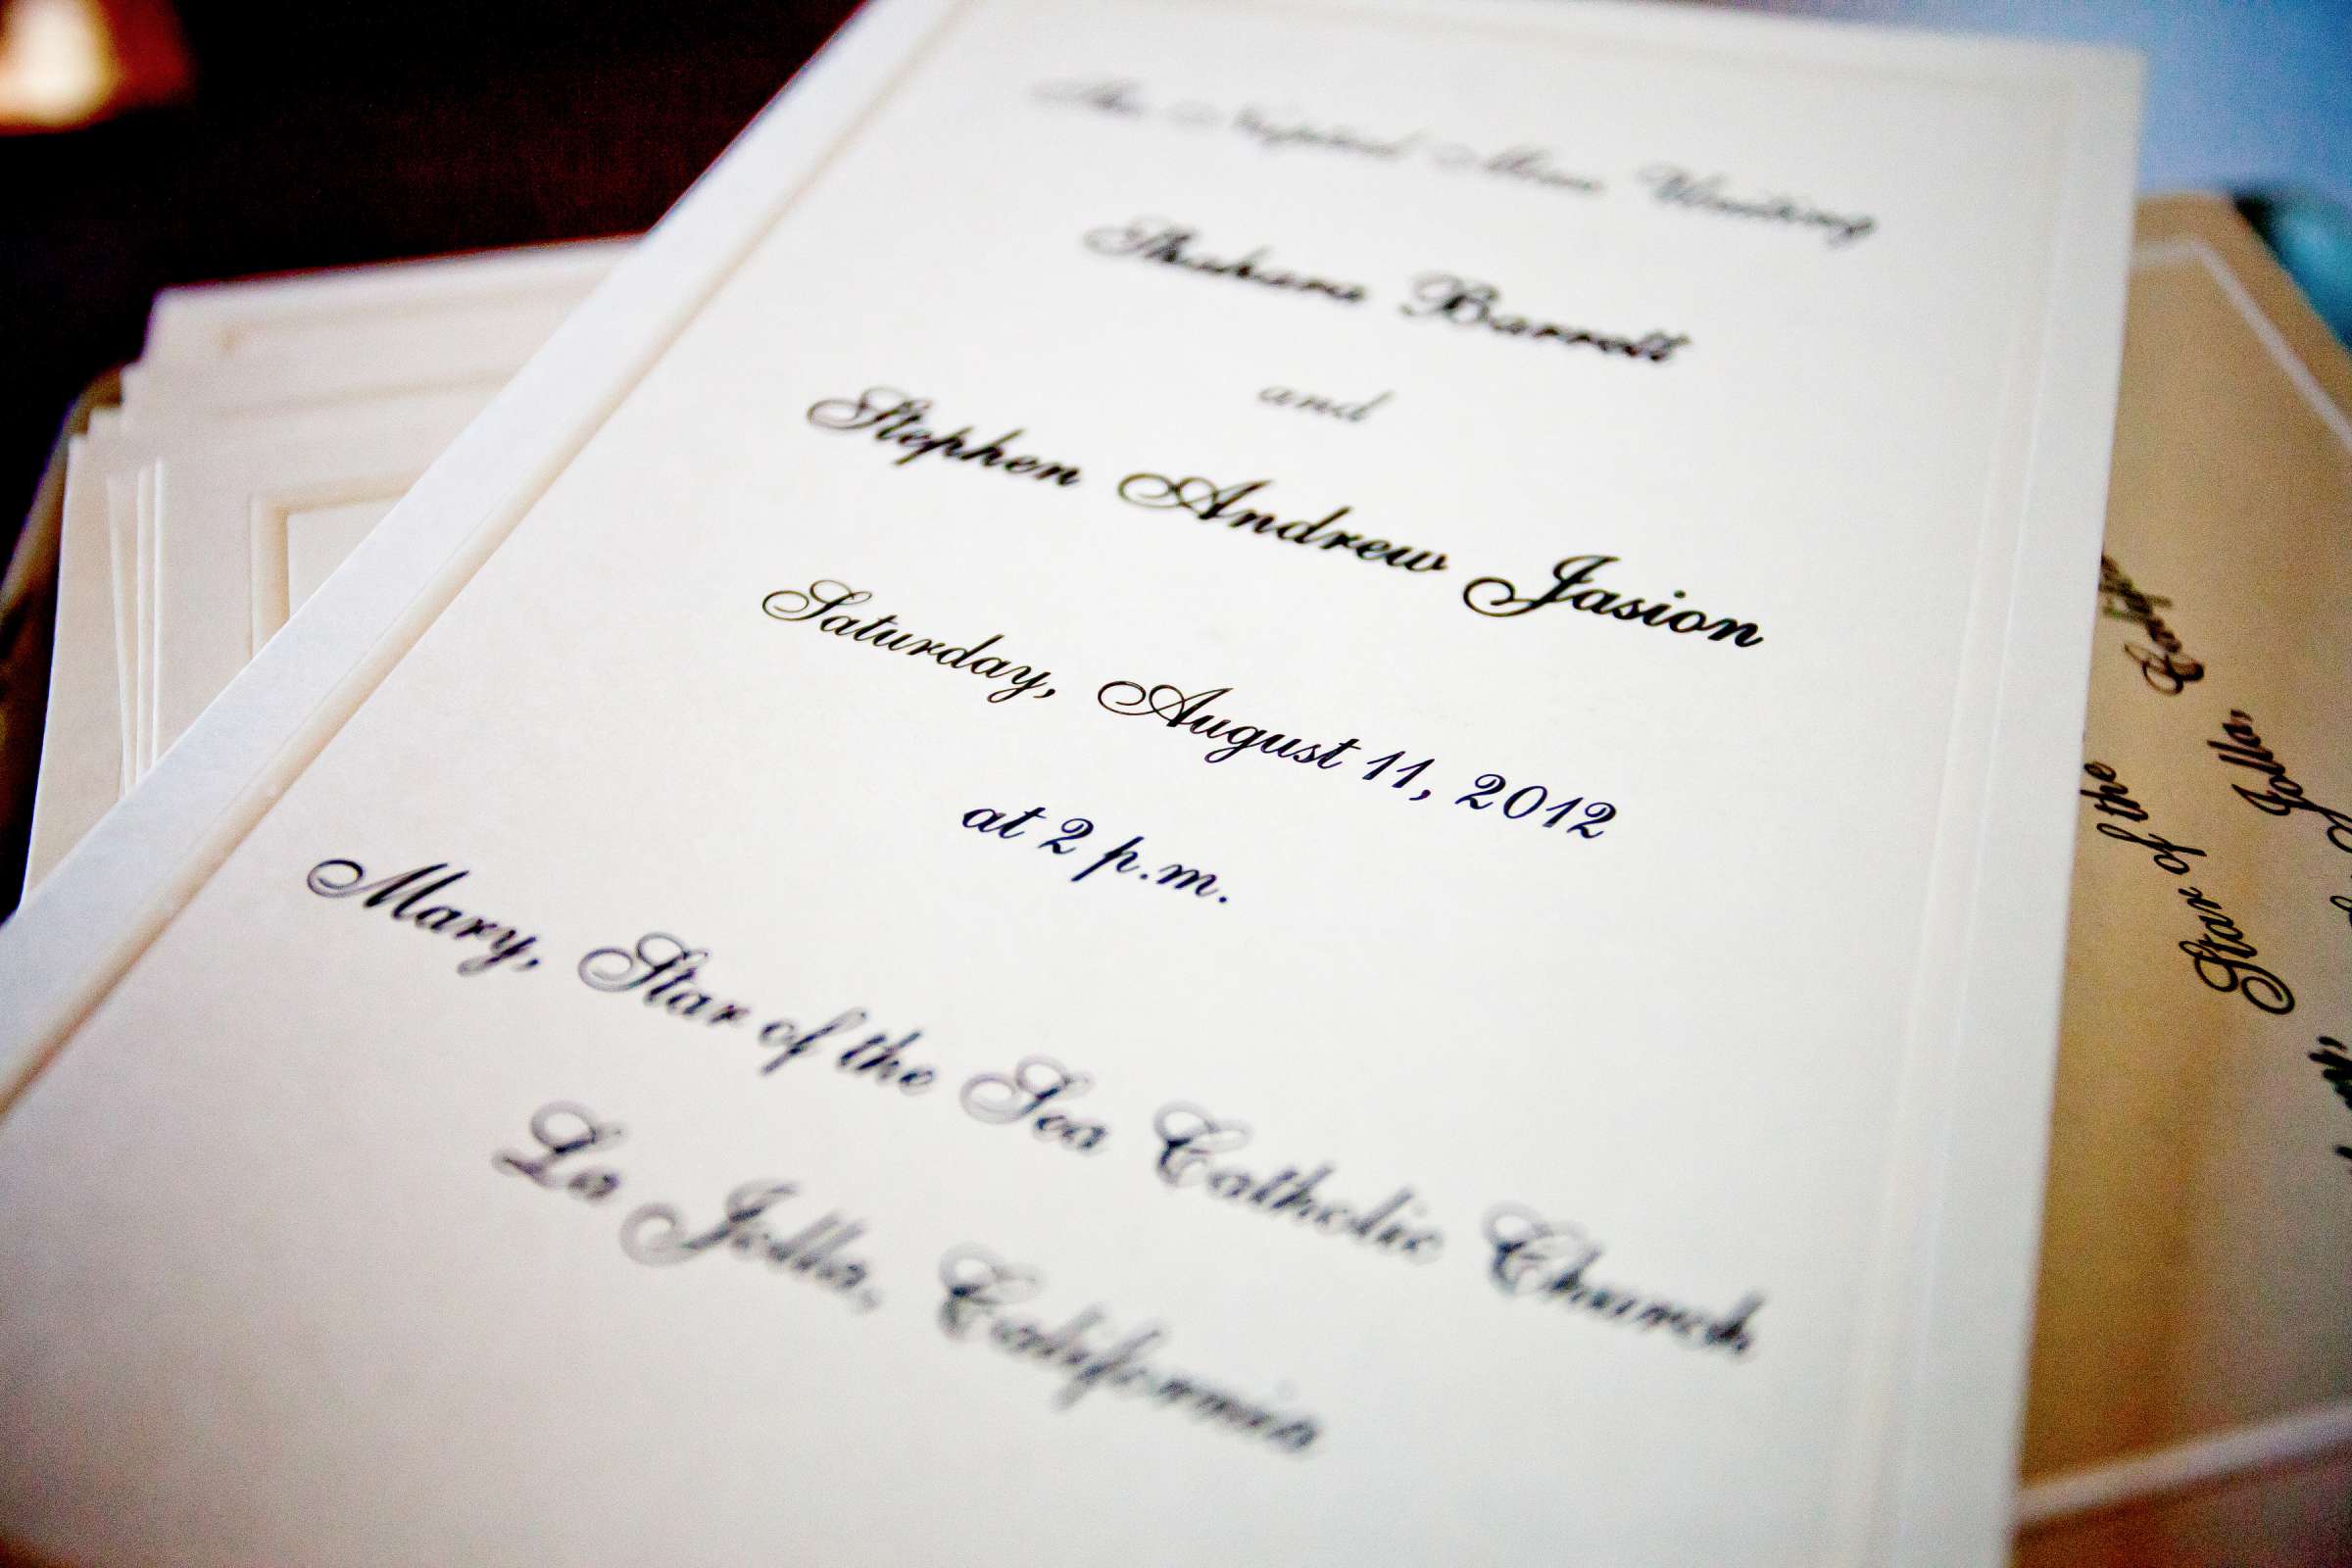 The Nuptial Mass Uniting
Shahane Barrett
and
Stephen Andrew Jasion
Saturday, August 11, 2012
at 2 p.m.
Mary, Star of the Sea Catholic Church
La Jolla, California
Star of the
La Jolla,